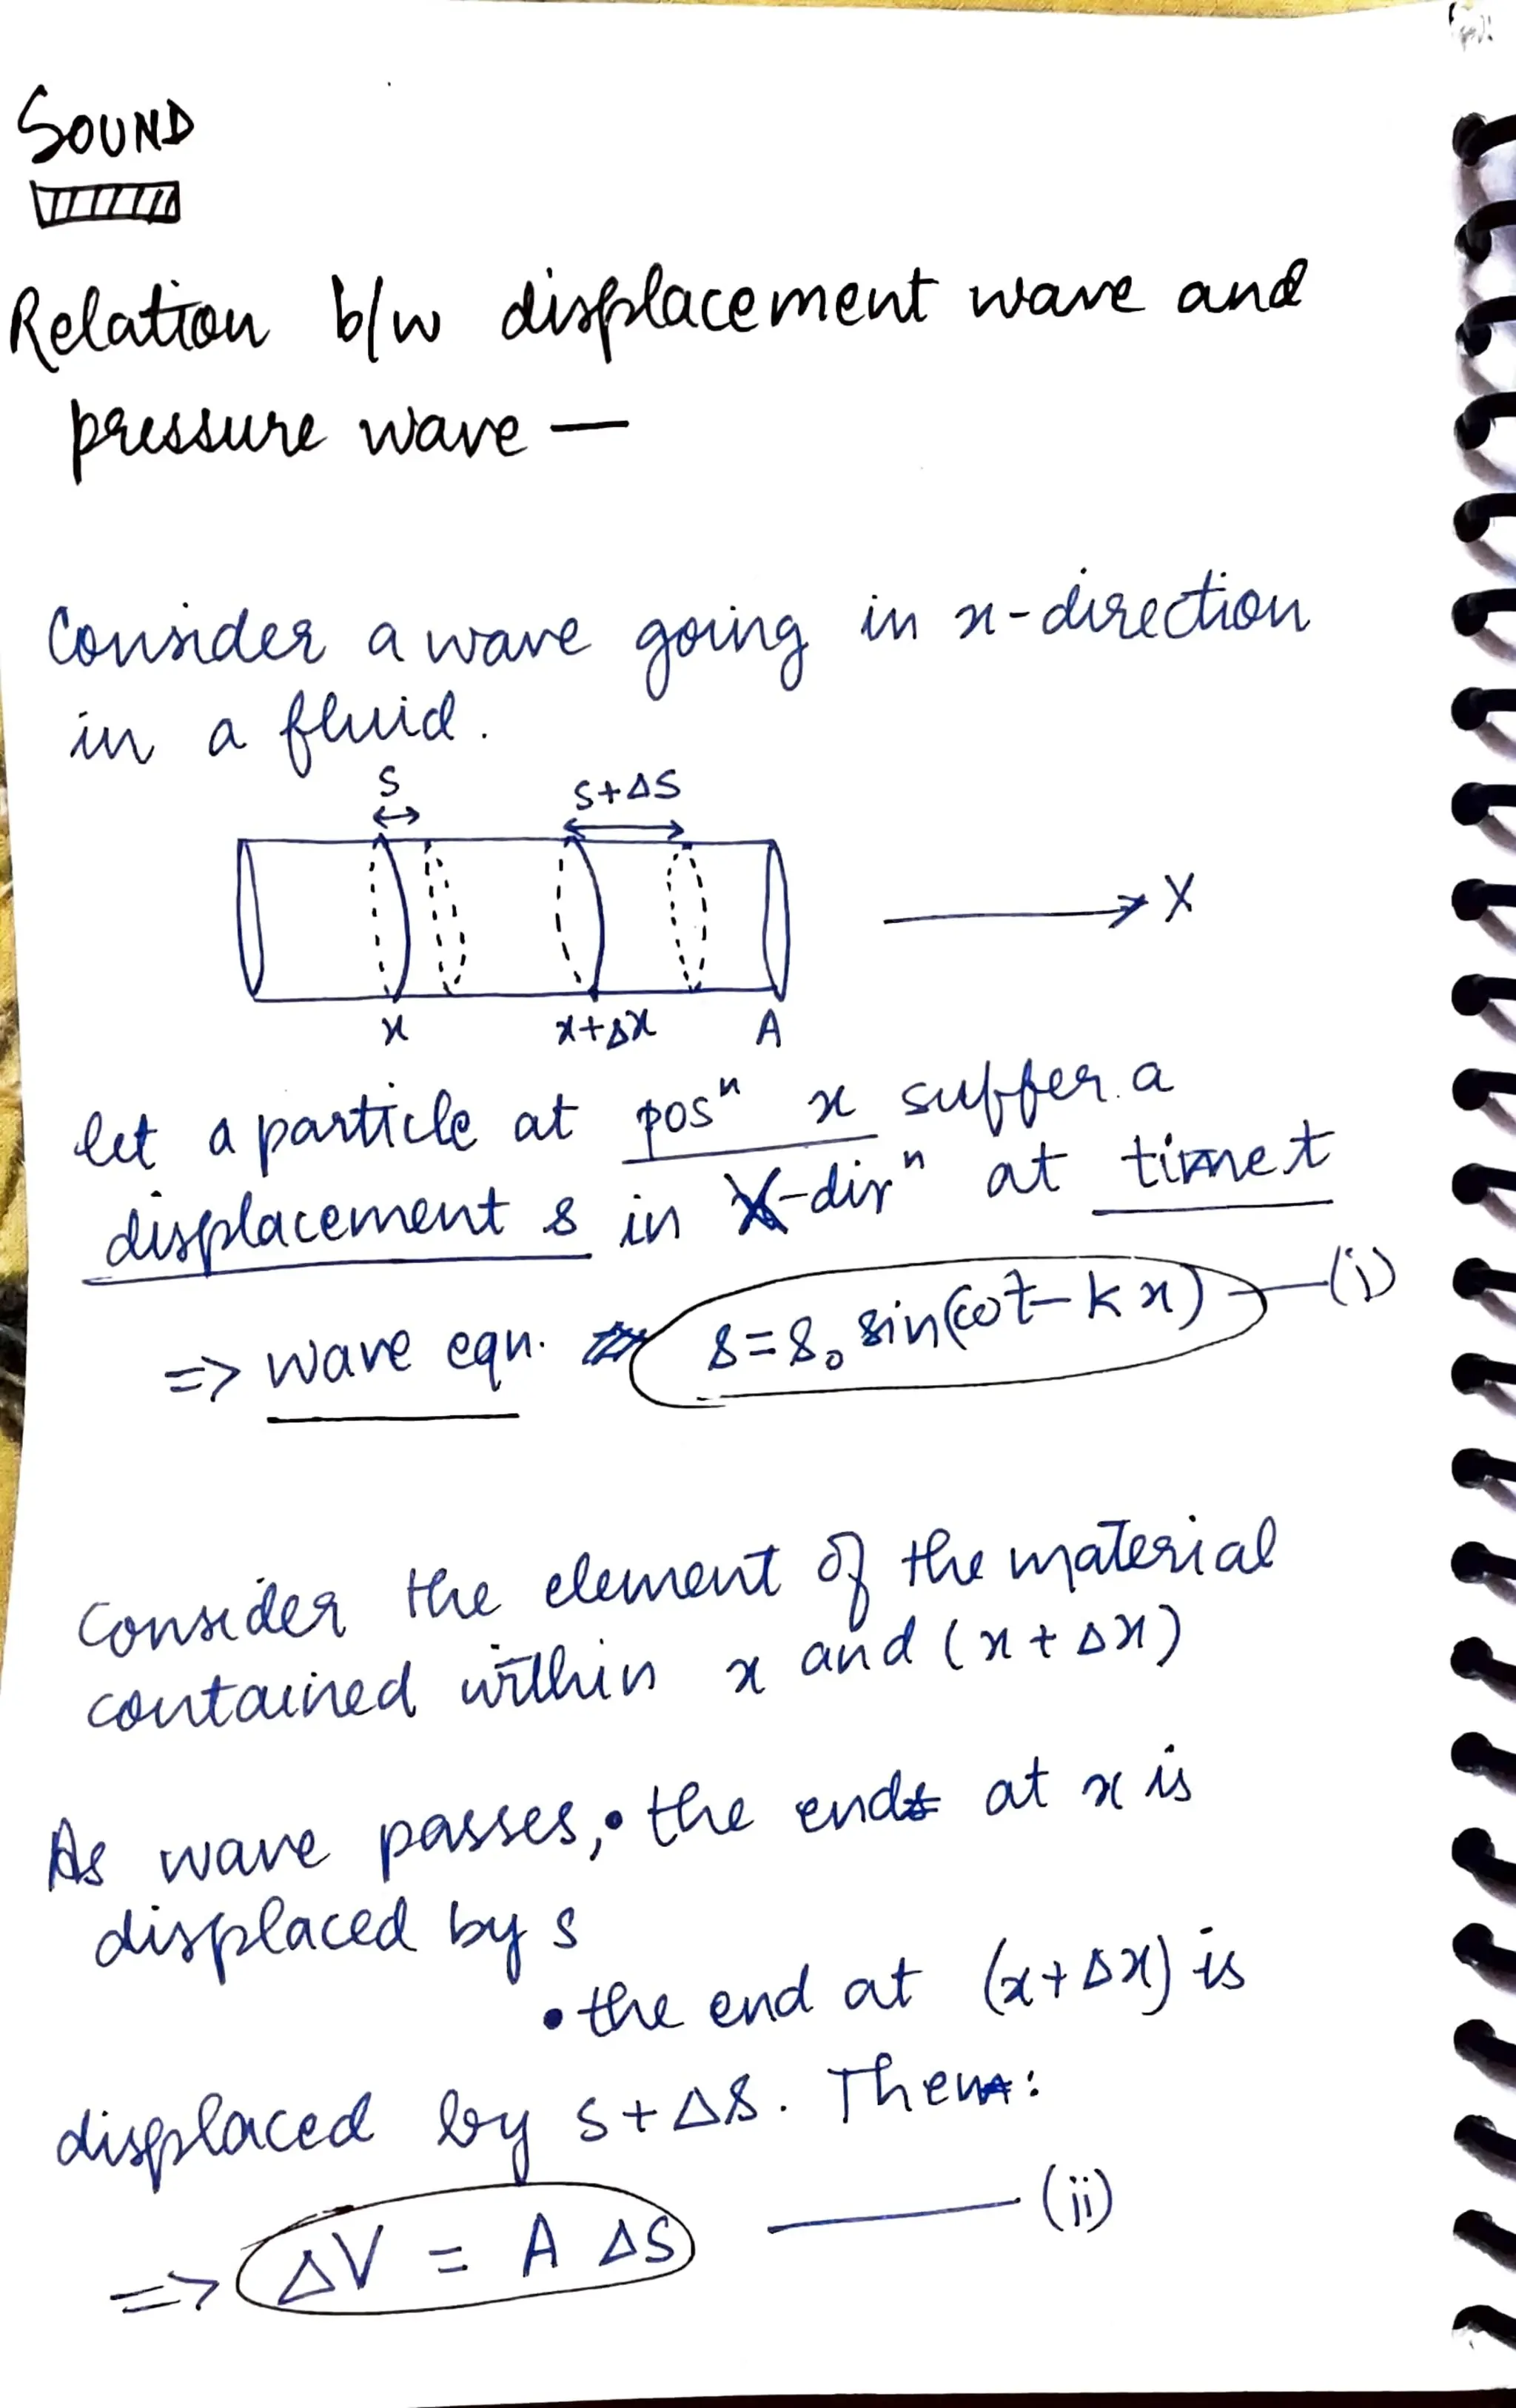 SOUND
Relation b/w displacement wave and
pressure wave —
Consider a wave going in x-direction
in a fluid.
S
S+ΔS
X
x
x+Δx
A
let a particle at posⁿ x suffer a
displacement s in X-dirⁿ at time t
=> wave eqn. s=s₀ sin(ωt-kx) —(i)
Consider the element of the material
contained within x and (x+Δx)
As wave passes, • the end at x is
displaced by s
• the end at (x+Δx) is
displaced by s+Δs. Then:
=> ΔV = A ΔS —(ii)